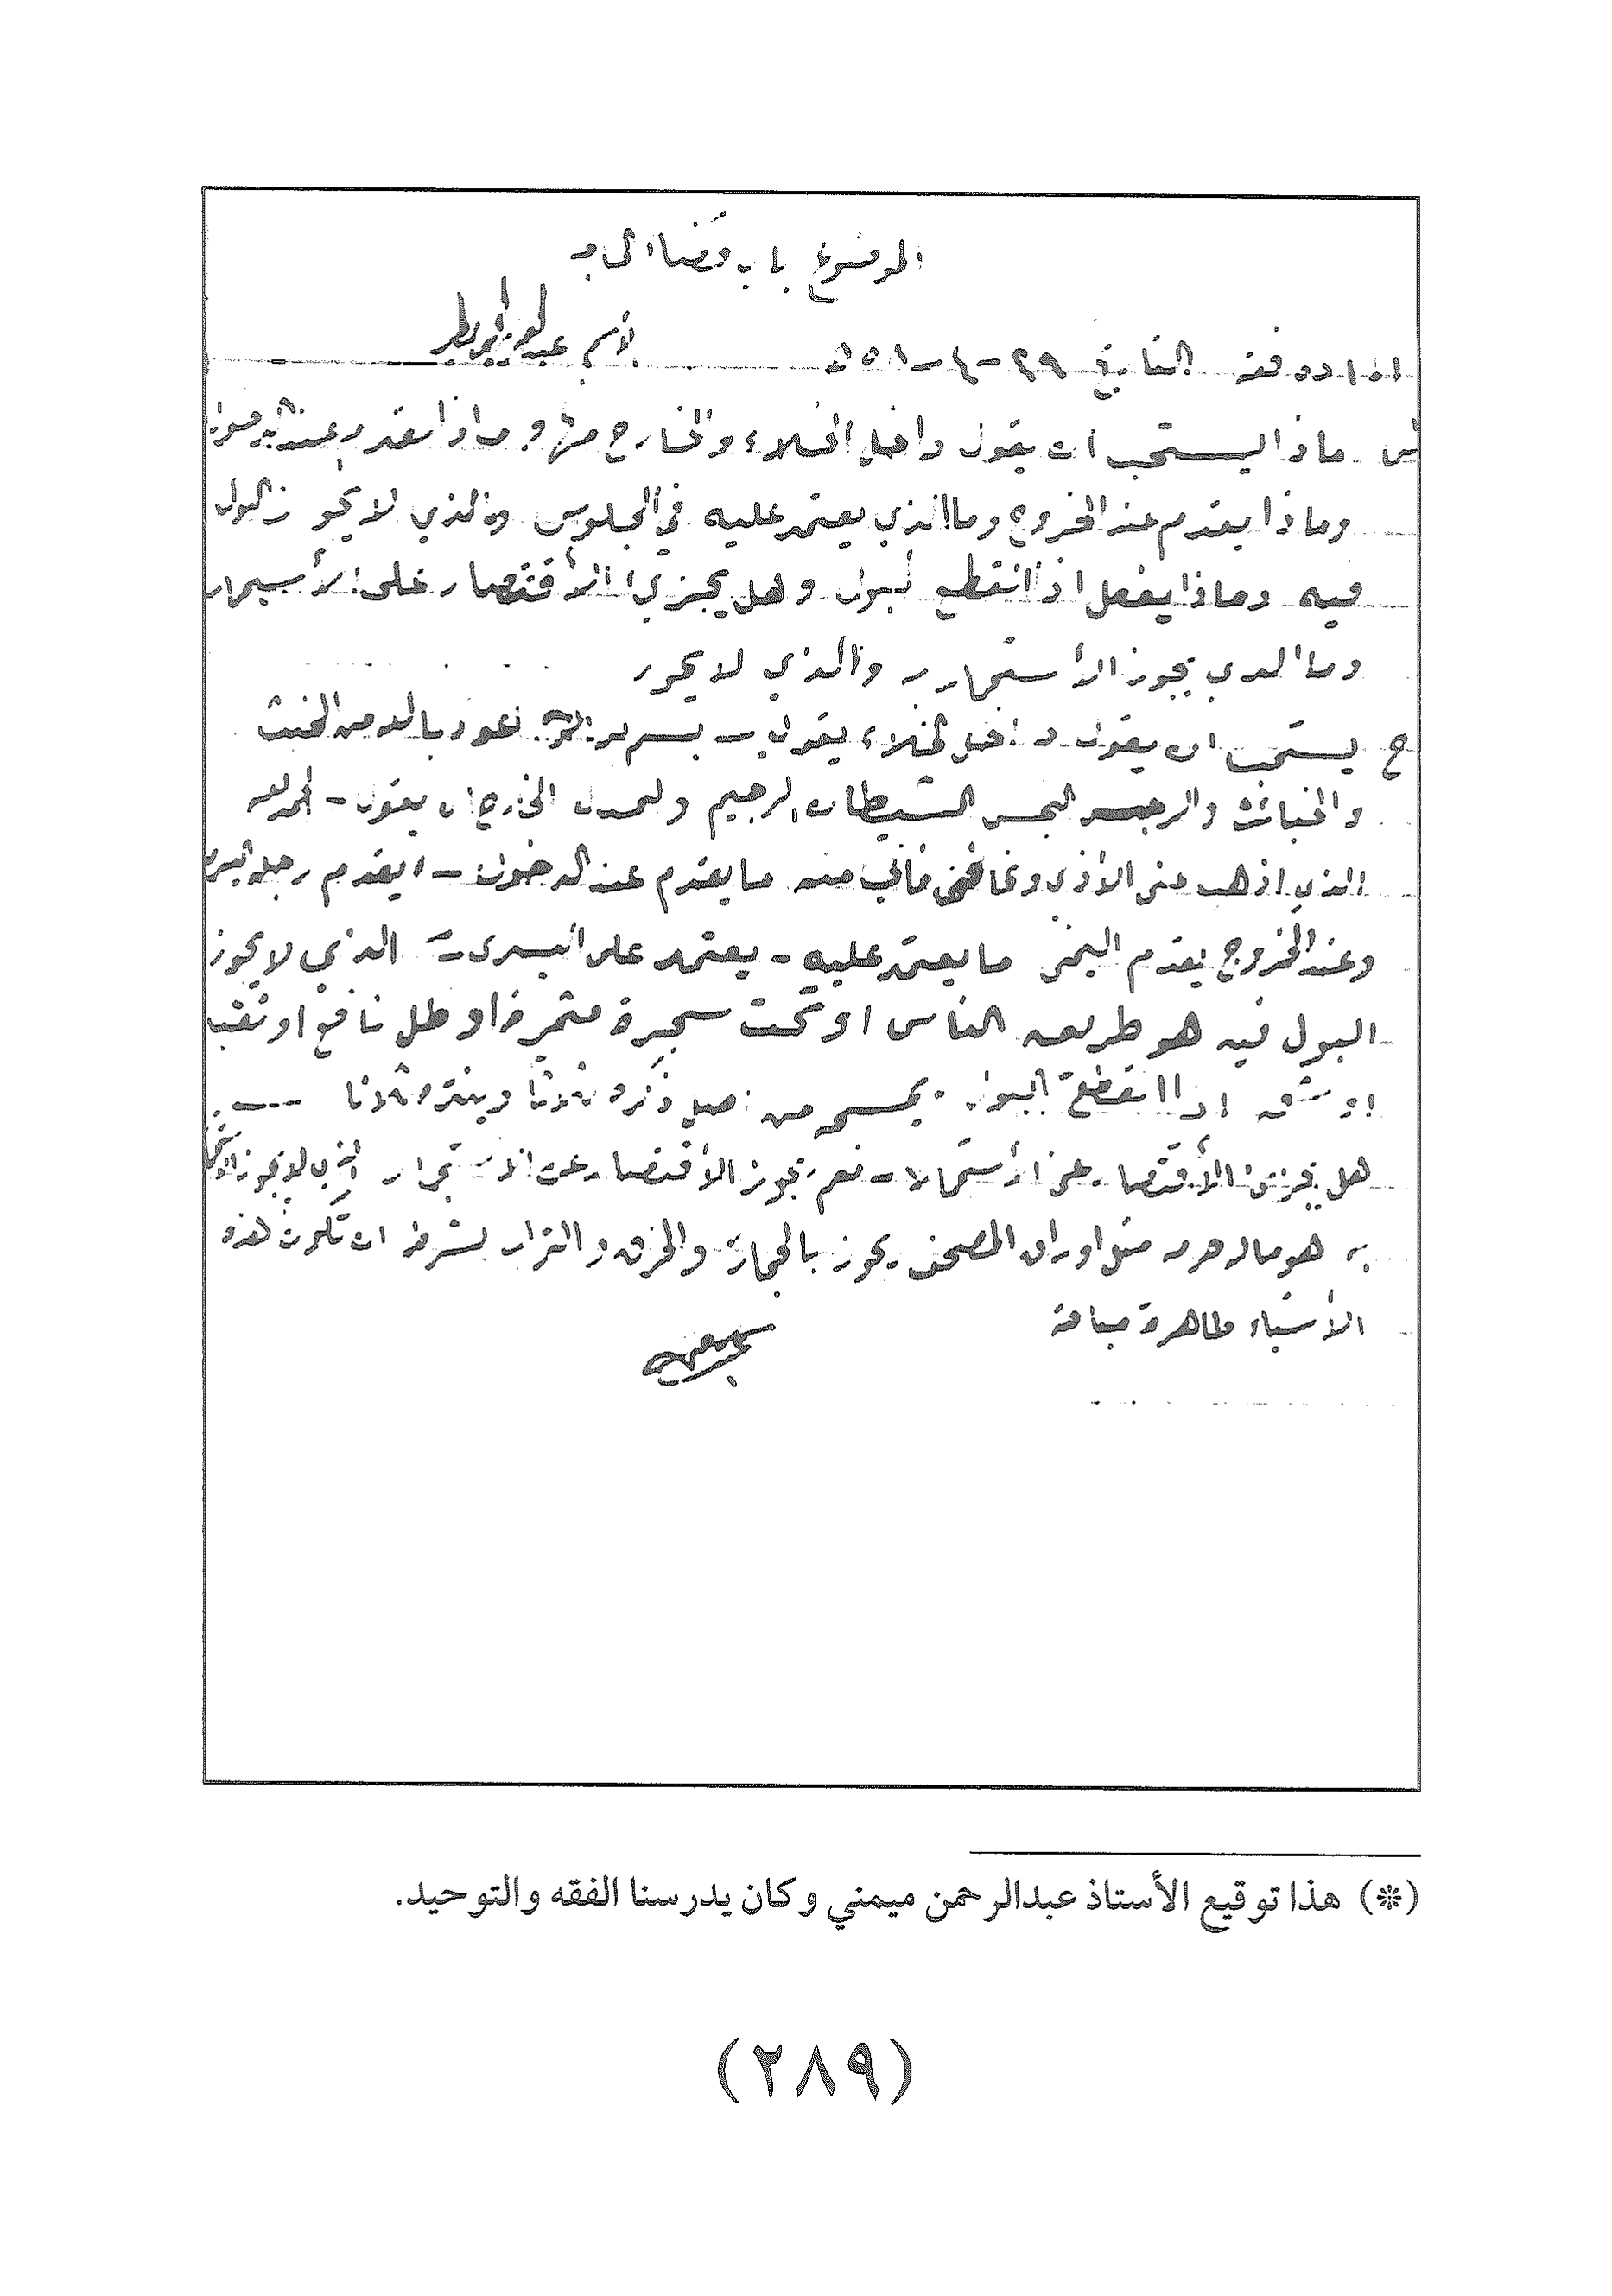 الموضوع باب قضا الحاجه
الماده فقه التاريخ ٢٩-٤- الاسم
س ماذا يستحب ان يقول داخل الخلاء والخارج منه وماذا يقدم عند الدخول
وماذا يقدم عند الخروج وما الذي يعتمد عليه في الجلوس والذي لا يجوز البول
فيه وماذا يفعل اذا انقطع البول وهل يجزي الأقتصار على الأستجمار
وما الذي يجوز الأستجمار به والذي لا يجوز
ج يستحب ان يقول داخل الخلاء يقول – بسم الله نعوذ بالله من الخبث
والخبائث والرجس النجس الشيطان الرجيم الخارج ان يقول – الحمد لله
الذي اذهب عني الأذى وعافني ما يقدم عند الدخول – يقدم رجله اليسرى
وعند الخروج يقدم اليمنى ما يعتمد عليه – يعتمد على اليسرى – الذي لا يجوز
البول فيه هو طريق الناس او تحت شجرة مثمرة او ظل نافع او ثقب
او شق اذا انقطع البول يمسح من اصل ذكره ثلاثا وينتره ثلاثا
هل يجزئ الأقتصار على الأستجمار – نعم يجوز الأقتصار على الاستجمار الذي لا يجوز
به هو ماله حرمه مثل اوراق المصحف يجوز بالحجارة والخرق والتراب بشرط ان تكون هذه
الأشياء طاهرة مباحة
(*) هذا توقيع الأستاذ عبدالرحمن ميمني وكان يدرسنا الفقه والتوحيد.
(٢٨٩)